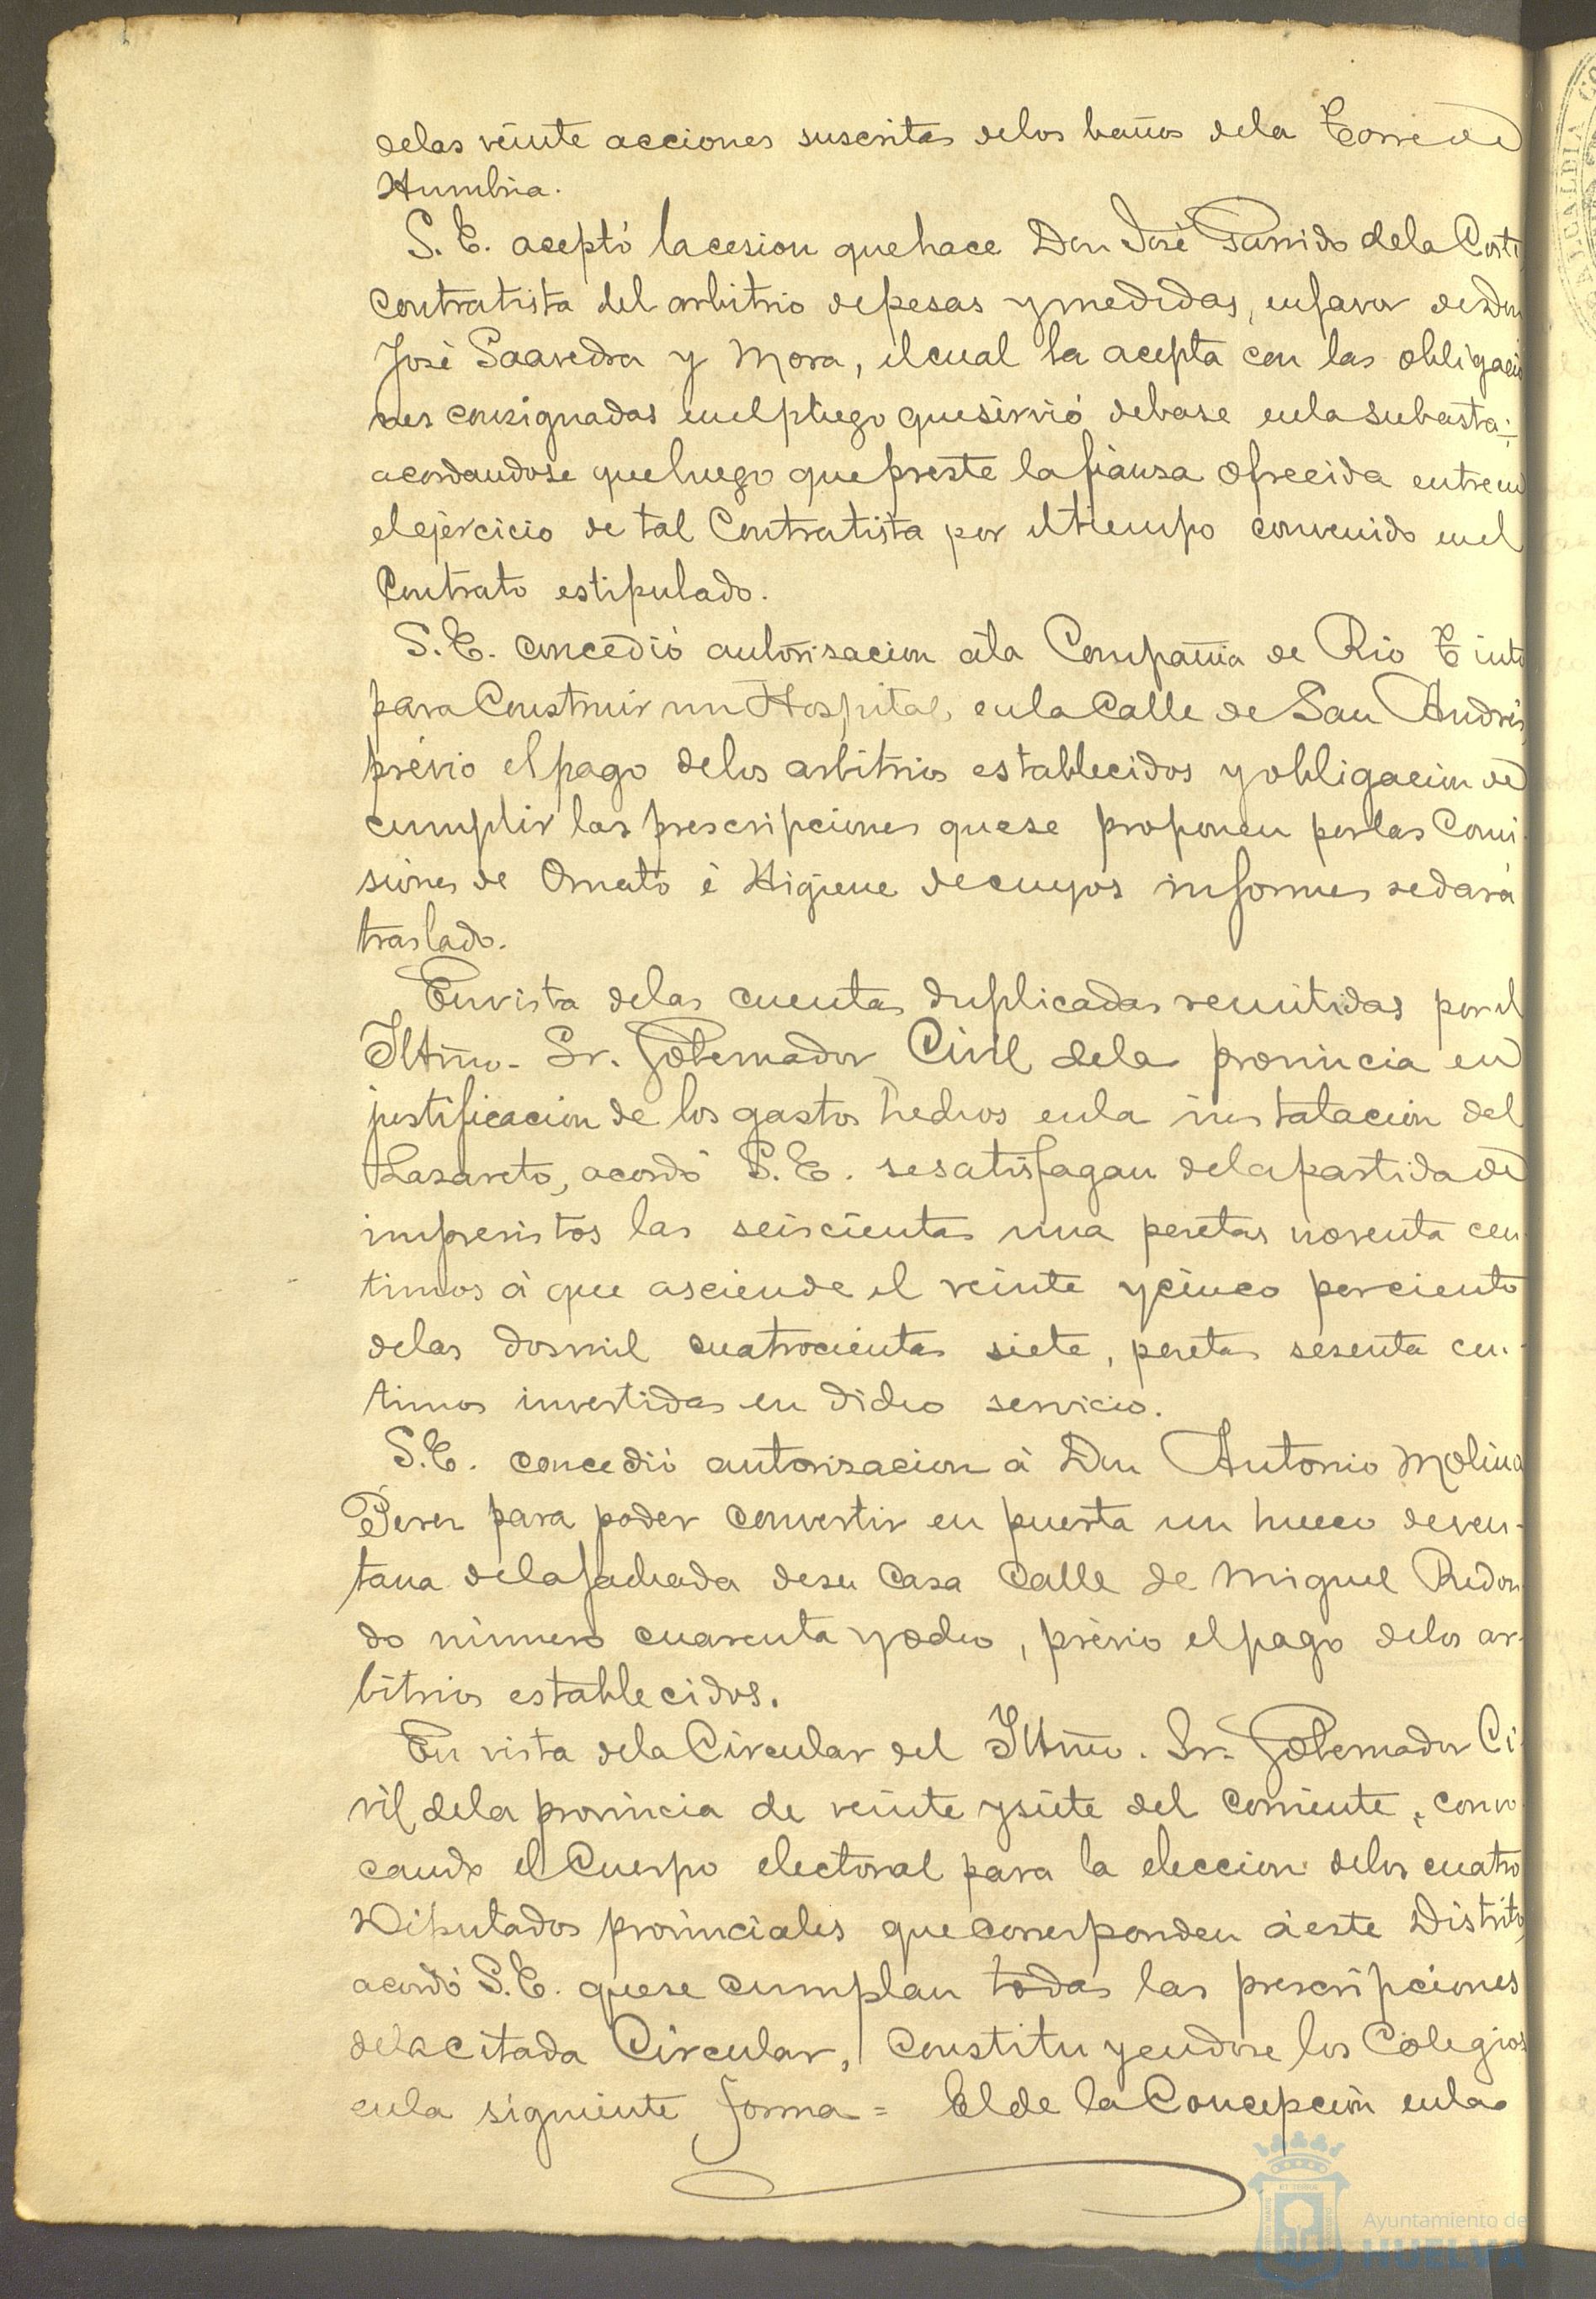 delas veinte acciones suscritas delos baños dela Torre de
Humbria.
S. E. aceptó la cesion que hace Don José Garrido dela Corte
contratista del arbitrio de pesas y medidas, en favor de Don
José Saavedra y Mora, el cual la acepta con las obligacio
nes consignadas en el pliego que sirvió de base en la subasta:
acordandose que luego que preste la fiansa ofrecida entre en
el ejercicio de tal Contratista por el tiempo convenido en el
Contrato estipulado.
S. E. concedió autorisacion á la Compañia de Rio Tinto
para Construir un Hospital, en la Calle de San Andrés,
prévio el pago delos arbitrios establecidos y obligacion de
cumplir las prescripciones que se proponen por las Comi-
siones de Ornato é Higiene de cuyos informes se dará
traslado.
En vista delas cuentas duplicadas remitidas por el
Iltmo. Sr. Gobernador Civil dela provincia en
justificacion de los gastos hechos en la instalacion del
Lazareto, acordó S. E. se satisfagan dela partida de
imprevistos las seiscientas una pesetas noventa cen-
timos á que asciende el veinte y cinco por ciento
delas dos mil cuatrocientas siete, pesetas sesenta cen-
timos invertidas en dicho servicio.
S. E. concedió autorizacion á Don Antonio Molina
Perez para poder convertir en puerta un hueco de ven-
tana dela fachada de su Casa Calle de Miguel Redon-
do número cuarenta y ocho, prévio el pago delos ar-
bitrios establecidos.
En vista dela Circular del Iltmo. Sr. Gobernador Ci-
vil dela provincia de veinte y siete del corriente, convo
cando el Cuerpo electoral para la eleccion delos cuatro
Diputados provinciales que corresponden á este Distrito,
acordó S. E. que se cumplan todas las prescripciones
dela citada Circular, constituyendose los Colegios
en la siguiente forma = El de la Concepcion en la
ALCALDIA CO
Ayuntamiento de
HUELVA